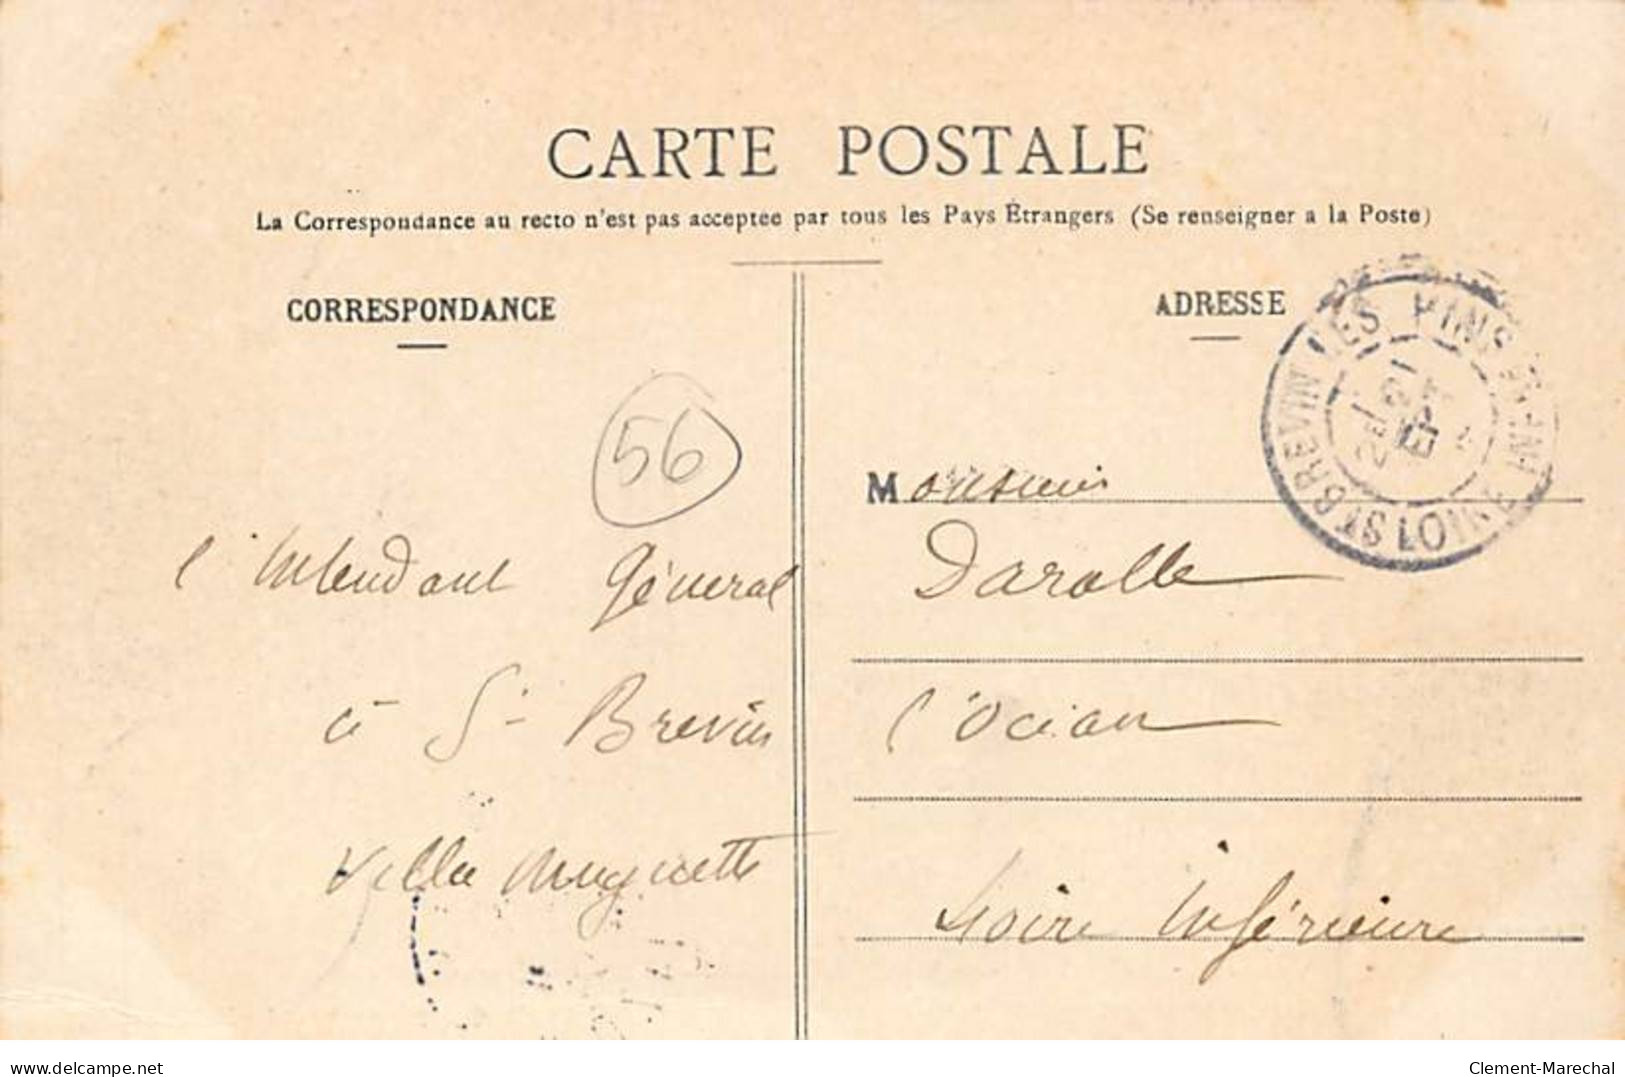 CARTE POSTALE
La Correspondance au recto n'est pas acceptée par tous les Pays Étrangers (Se renseigner à la Poste)
CORRESPONDANCE
ADRESSE
ST BREVIN LES PINS
LOIRE INFRE
56
Monsieur
l'Intendant Général
Darolle
à St Brevin
l'Océan
Villa Muguette
Loire Inférieure
delcampe.net
Clement-Marechal